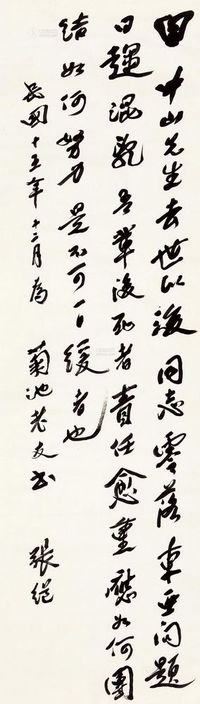 田中山先生去世以後同志零落東亜问題
日趨混乱吾輩後死者責任愈重應如何團
结如何努力是不可一日缓者也
民國十五年十二月為 菊池老友书 張继